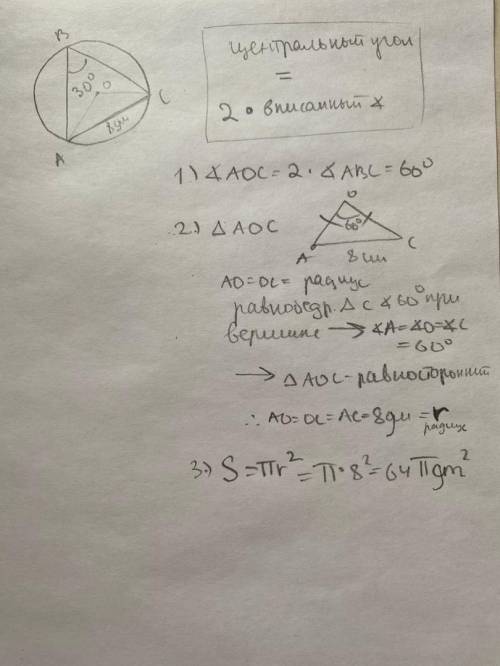 B
30°
O
C
8дм
A
центральный угол
=
2 • вписанный ∡
1) ∡AOC = 2 · ∡ABC = 60°
2.) △ AOC
O
60°
A
C
8 см
AO = OC = радиус
равнобедр. △ с ∡60° при
вершине → ∡A=∡O=∡C
= 60°
→ △AOC - равносторонний
∴ AO = OC = AC = 8дм = r
радиус
3.) S = πr² = π • 8² = 64π дm²